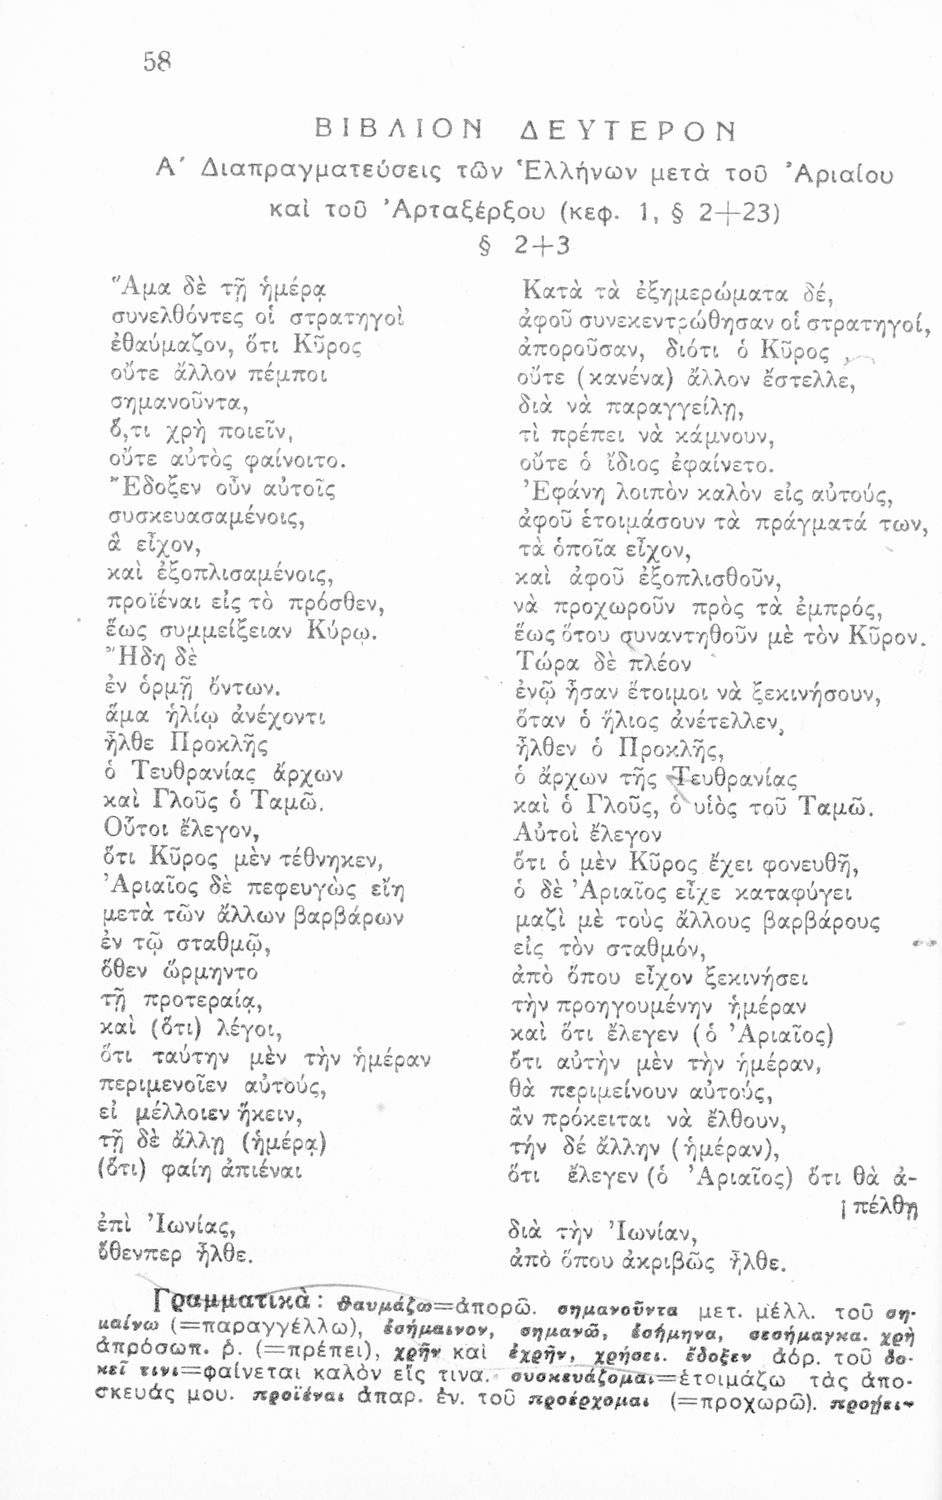 58
ΒΙΒΛΙΟΝ ΔΕΥΤΕΡΟΝ
Α΄ Διαπραγματεύσεις τῶν Ἑλλήνων μετὰ τοῦ Ἀριαίου
καὶ τοῦ Ἀρταξέρξου (κεφ. 1, § 2+23)
§ 2+3
Ἅμα δὲ τῇ ἡμέρᾳ
συνελθόντες οἱ στρατηγοὶ
ἐθαύμαζον, ὅτι Κῦρος
οὔτε ἄλλον πέμποι
σημανοῦντα,
ὅ,τι χρὴ ποιεῖν,
οὔτε αὐτὸς φαίνοιτο.
Ἔδοξεν οὖν αὐτοῖς
συσκευασαμένοις,
ἃ εἶχον,
καὶ ἐξοπλισαμένοις,
προϊέναι εἰς τὸ πρόσθεν,
ἕως συμμείξειαν Κύρῳ.
Ἤδη δὲ
ἐν ὁρμῇ ὄντων.
ἅμα ἡλίῳ ἀνέχοντι
ἦλθε Προκλῆς
ὁ Τευθρανίας ἄρχων
καὶ Γλοῦς ὁ Ταμῶ.
Οὗτοι ἔλεγον,
ὅτι Κῦρος μὲν τέθνηκεν,
Ἀριαῖος δὲ πεφευγὼς εἴη
μετὰ τῶν ἄλλων βαρβάρων
ἐν τῷ σταθμῷ,
ὅθεν ὥρμηντο
τῇ προτεραίᾳ,
καὶ (ὅτι) λέγοι,
ὅτι ταύτην μὲν τὴν ἡμέραν
περιμενοῖεν αὐτούς,
εἰ μέλλοιεν ἥκειν,
τῇ δὲ ἄλλῃ (ἡμέρᾳ)
(ὅτι) φαίη ἀπιέναι
ἐπὶ Ἰωνίας,
ὅθενπερ ἦλθε.
Κατὰ τὰ ἐξημερώματα δέ,
ἀφοῦ συνεκεντρώθησαν οἱ στρατηγοί,
ἀποροῦσαν, διότι ὁ Κῦρος
οὔτε (κανένα) ἄλλον ἔστελλε,
διὰ νὰ παραγγείλῃ,
τὶ πρέπει νὰ κάμνουν,
οὔτε ὁ ἴδιος ἐφαίνετο.
Ἐφάνη λοιπὸν καλὸν εἰς αὐτούς,
ἀφοῦ ἑτοιμάσουν τὰ πράγματά των,
τὰ ὁποῖα εἶχον,
καὶ ἀφοῦ ἐξοπλισθοῦν,
νὰ προχωροῦν πρὸς τὰ ἐμπρός,
ἕως ὅτου συναντηθοῦν μὲ τὸν Κῦρον.
Τώρα δὲ πλέον
ἐνῷ ἦσαν ἕτοιμοι νὰ ξεκινήσουν,
ὅταν ὁ ἥλιος ἀνέτελλεν,
ἦλθεν ὁ Προκλῆς,
ὁ ἄρχων τῆς Τευθρανίας
καὶ ὁ Γλοῦς, ὁ υἱὸς τοῦ Ταμῶ.
Αὐτοὶ ἔλεγον
ὅτι ὁ μὲν Κῦρος ἔχει φονευθῆ,
ὁ δὲ Ἀριαῖος εἶχε καταφύγει
μαζὶ μὲ τοὺς ἄλλους βαρβάρους
εἰς τὸν σταθμόν,
ἀπὸ ὅπου εἶχον ξεκινήσει
τὴν προηγουμένην ἡμέραν
καὶ ὅτι ἔλεγεν (ὁ Ἀριαῖος)
ὅτι αὐτὴν μὲν τὴν ἡμέραν,
θὰ περιμείνουν αὐτούς,
ἂν πρόκειται νὰ ἔλθουν,
τήν δέ ἄλλην (ἡμέραν),
ὅτι ἔλεγεν (ὁ Ἀριαῖος) ὅτι θὰ ἀ-
| πέλθῃ
διὰ τὴν Ἰωνίαν,
ἀπὸ ὅπου ἀκριβῶς ἦλθε.
Γραμματικὰ: θαυμάζω=ἀπορῶ. σημανοῦντα μετ. μέλλ. τοῦ ση-
μαίνω (=παραγγέλλω), ἐσήμαινον, σημανῶ, ἐσήμηνα, σεσήμαγκα. χρὴ
ἀπρόσωπ. ῥ. (=πρέπει), χρῆν καὶ ἐχρῆν, χρήσει. ἔδοξεν ἀόρ. τοῦ δο-
κεῖ τινι=φαίνεται καλὸν εἰς τινα. συσκευάζομαι=ἑτοιμάζω τὰς ἀπο-
σκευάς μου. προϊέναι ἀπαρ. ἐν. τοῦ προέρχομαι (=προχωρῶ). προῄειν